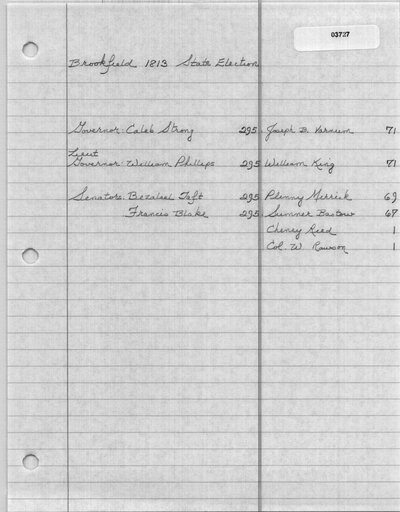 03727
Brookfield 1813 State Election
Governor: Caleb Strong 295 Joseph B. Varnum 71
Lieut
Governor: William Phillips 295 William King 71
Senators: Bezaleel Taft 295 Plinny Merrick 69
Francis Blake 295 Sumner Bastow 67
Cheney Reed 1
Col. W. Rawson 1